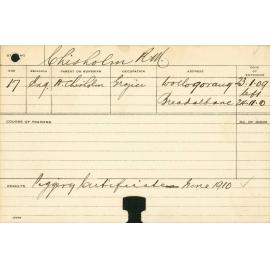 Chisholm R.M.
AGE RELIGION PARENT OR GUARDIAN OCCUPATION ADDRESS DATE OF ENTRANCE
17 Ang. W. Chisholm Grazier Wollogorang 23.1.09
left
Breadalbane 24.11.10
COURSE OF TRAINING
RESULTS Piggery Certificate June 1910